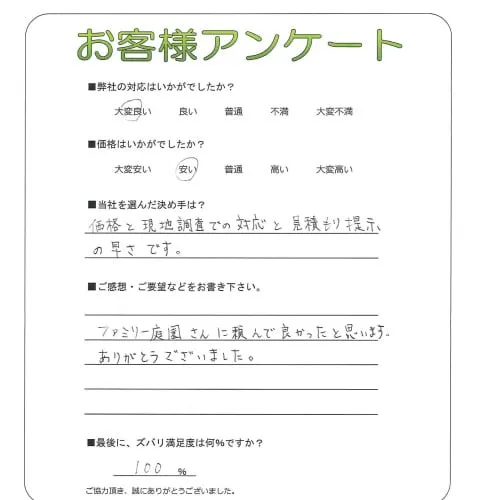 お客様アンケート
■弊社の対応はいかがでしたか?
大変良い 良い 普通 不満 大変不満
■価格はいかがでしたか?
大変安い 安い 普通 高い 大変高い
■当社を選んだ決め手は?
価格と現地調査での対応と見積もり提示
の早さです。
■ご感想・ご要望などをお書き下さい。
ファミリー庭園さんに頼んで良かったと思います。
ありがとうございました。
■最後に、ズバリ満足度は何%ですか?
100 %
ご協力頂き、誠にありがとうございました。